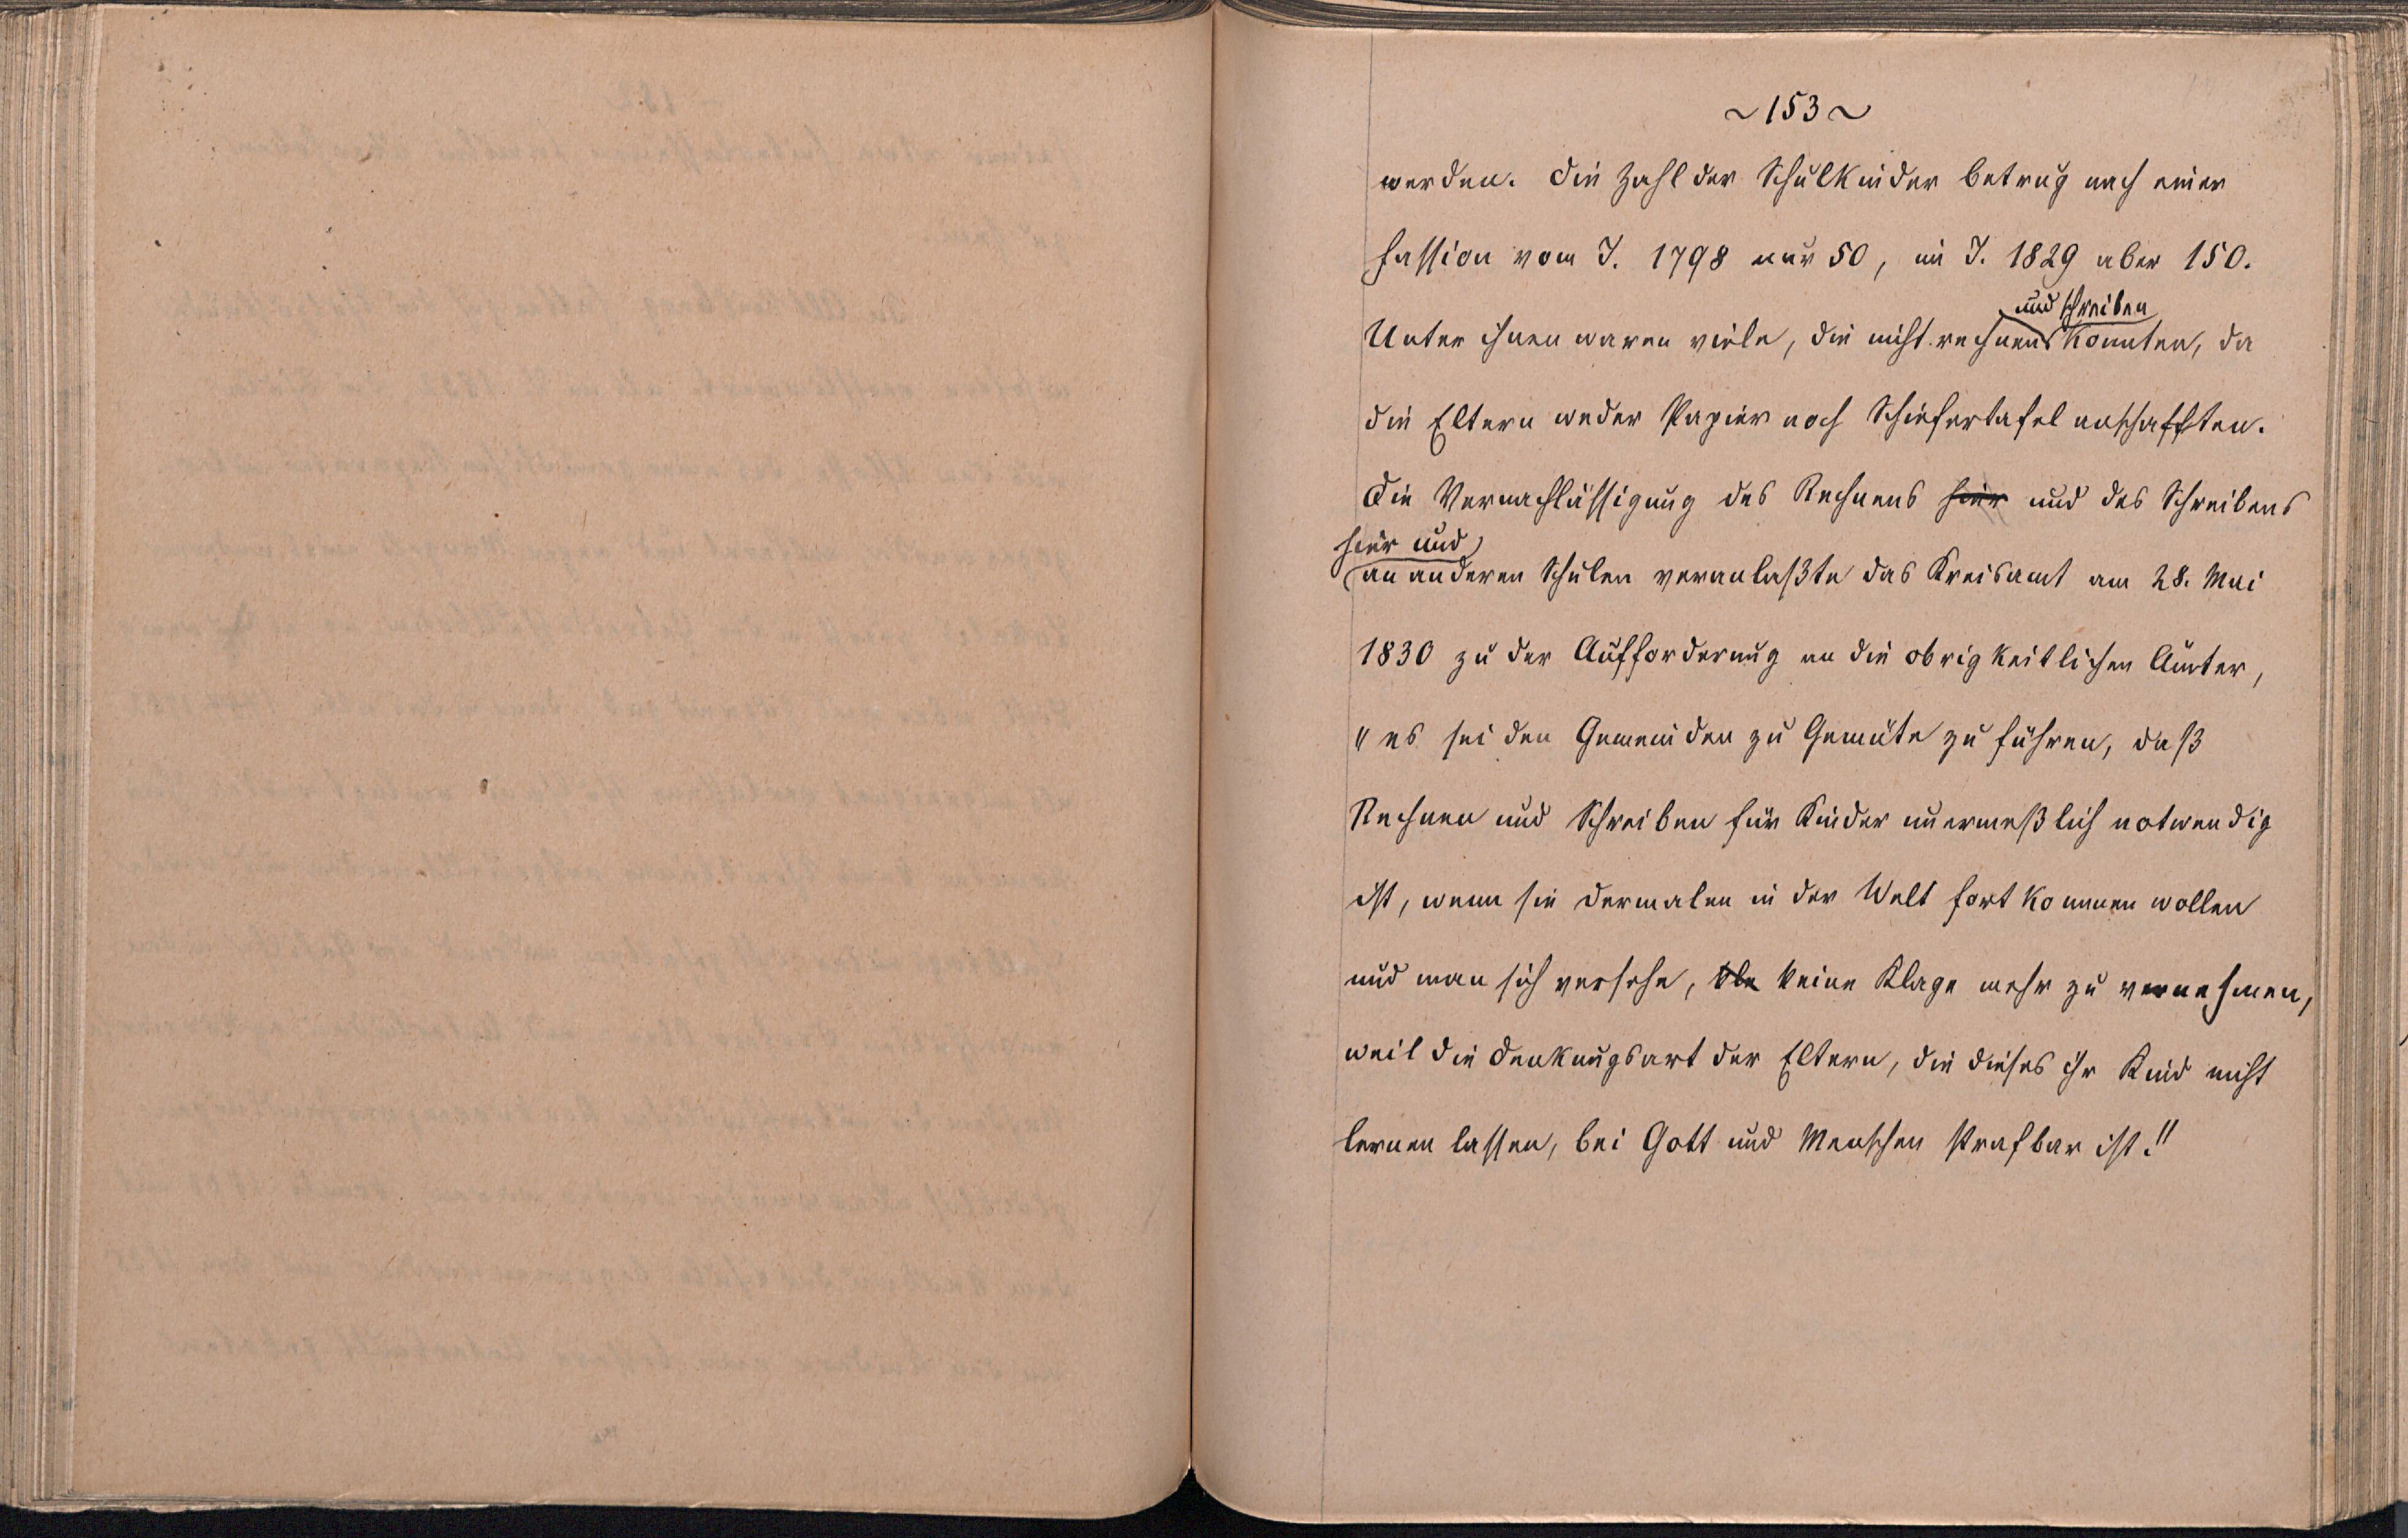 ~ 153 ~
werden. Die Zahl der Schulkinder betrug nach einer
Fassion vom J. 1798 nur 50, im J. 1829 aber 150.
und schreiben
Unter ihnen waren viele, die nicht rechnen konnten, da
die Eltern weder Papier noch Schiefertafel anschafften.
Die Vernachlässigung des Rechnens hier und des Schreibens
hier und
an anderen Schulen veranlaßte das Kreisamt am 28. Mai
1830 zu der Aufforderung an die obrigkeitlichen Ämter,
"es sei den Gemeinden zu Gemüte zu führen, daß
Rechnen und Schreiben für Kinder unermeßlich notwendig
ist, wenn sie dermalen in der Welt fortkommen wollen
und man sich versehe, keine Klage mehr zu vernehmen,
weil die Denkungsart der Eltern, die dieses ihr Kind nicht
lernen lassen, bei Gott und Menschen strafbar ist!"